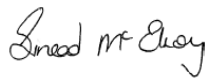 Sinead McElroy